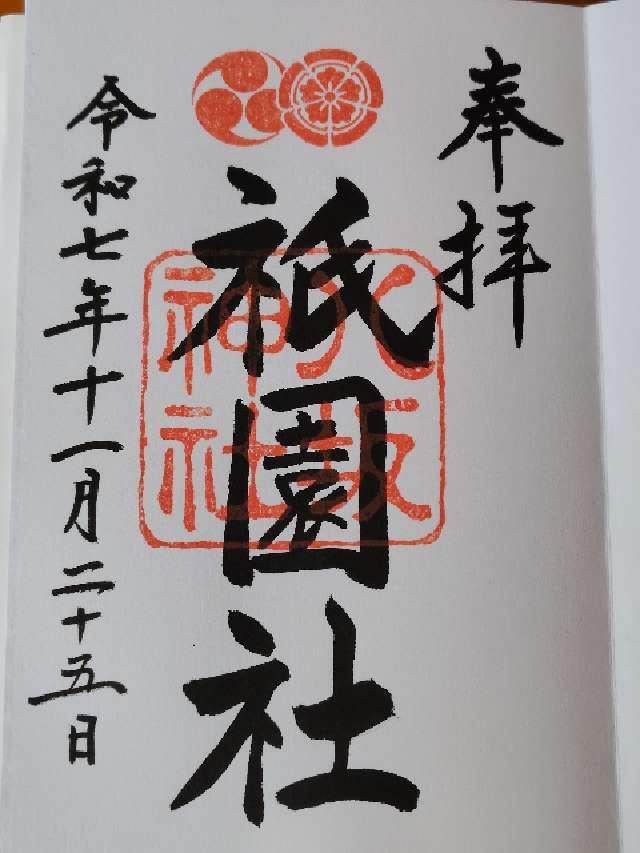 奉拝
祇園社
八坂
神社
令和七年十一月二十五日